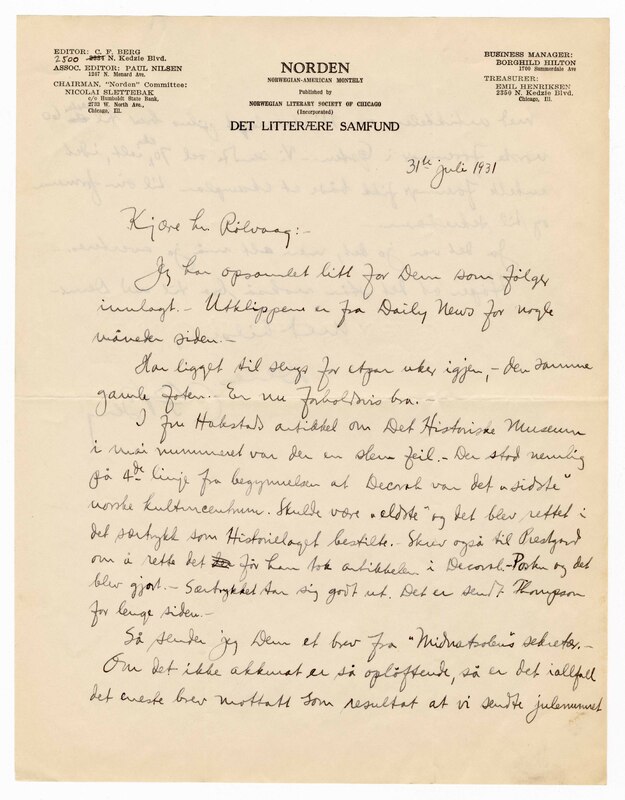 EDITOR: C. F. BERG
2500 2234 N. Kedzie Blvd.
ASSOC. EDITOR: PAUL NILSEN
1207 N. Menard Ave.
CHAIRMAN, "Norden" Committee:
NICOLAI SLETTEBAK
c/o Humboldt State Bank,
2733 W. North Ave.,
Chicago, Ill.
NORDEN
NORWEGIAN-AMERICAN MONTHLY
Published by
NORWEGIAN LITERARY SOCIETY OF CHICAGO
(Incorporated)
DET LITTERÆRE SAMFUND
BUSINESS MANAGER:
BORGHILD HILTON
1700 Summerdale Ave
TREASURER:
EMIL HENRIKSEN
2350 N. Kedzie Blvd.
Chicago, Ill.
31te juli 1931
Kjære hr. Rölvaag:-
Jeg har opsamlet litt for Dem som følger
innlagt. - Utklippene er fra Daily News for nogle
måneder siden.-
Har ligget til sengs for et par uker igjen, - den samme
gamle foten. Er nu forholdsvis bra. -
I fru Hakestads artikkel om Det Historiske Museum
i mai nummeret var der en slem feil. - Der stod nemlig
på 4de linje fra begynnelsen at Decorah var det "sidste"
norske kulturcentrum. Skulde være "eldste" og det blev rettet i
det særtrykk som Historielaget bestilte. Skrev også til Prestgard
om å rette det før han tok artikkelen i Decorah-Posten og det
blev gjort. - Særtrykket tar sig godt ut. Det er sendt Thompson
for lenge siden. -
Så sender jeg Dem et brev fra "Midnatsolens" sekretær. -
Om det ikke akkurat er så opløftende, så er det iallfall
det eneste brev mottatt som resultat at vi sendte julenummeret